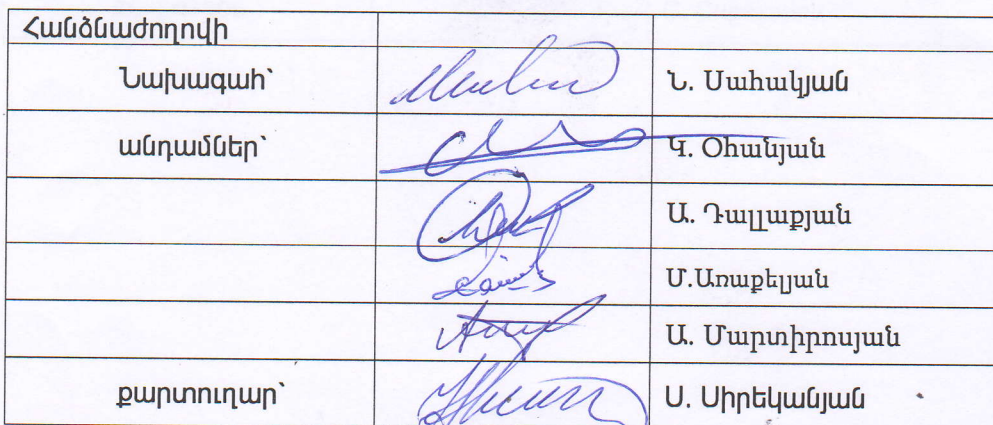 Հանձնաժողովի
Նախագահ՝ Ն. Սահակյան
անդամներ՝ Գ. Օհանյան
Ա. Դալլաքյան
Մ.Առաքելյան
Ա. Մարտիրոսյան
քարտուղար՝ Ս. Սիրեկանյան